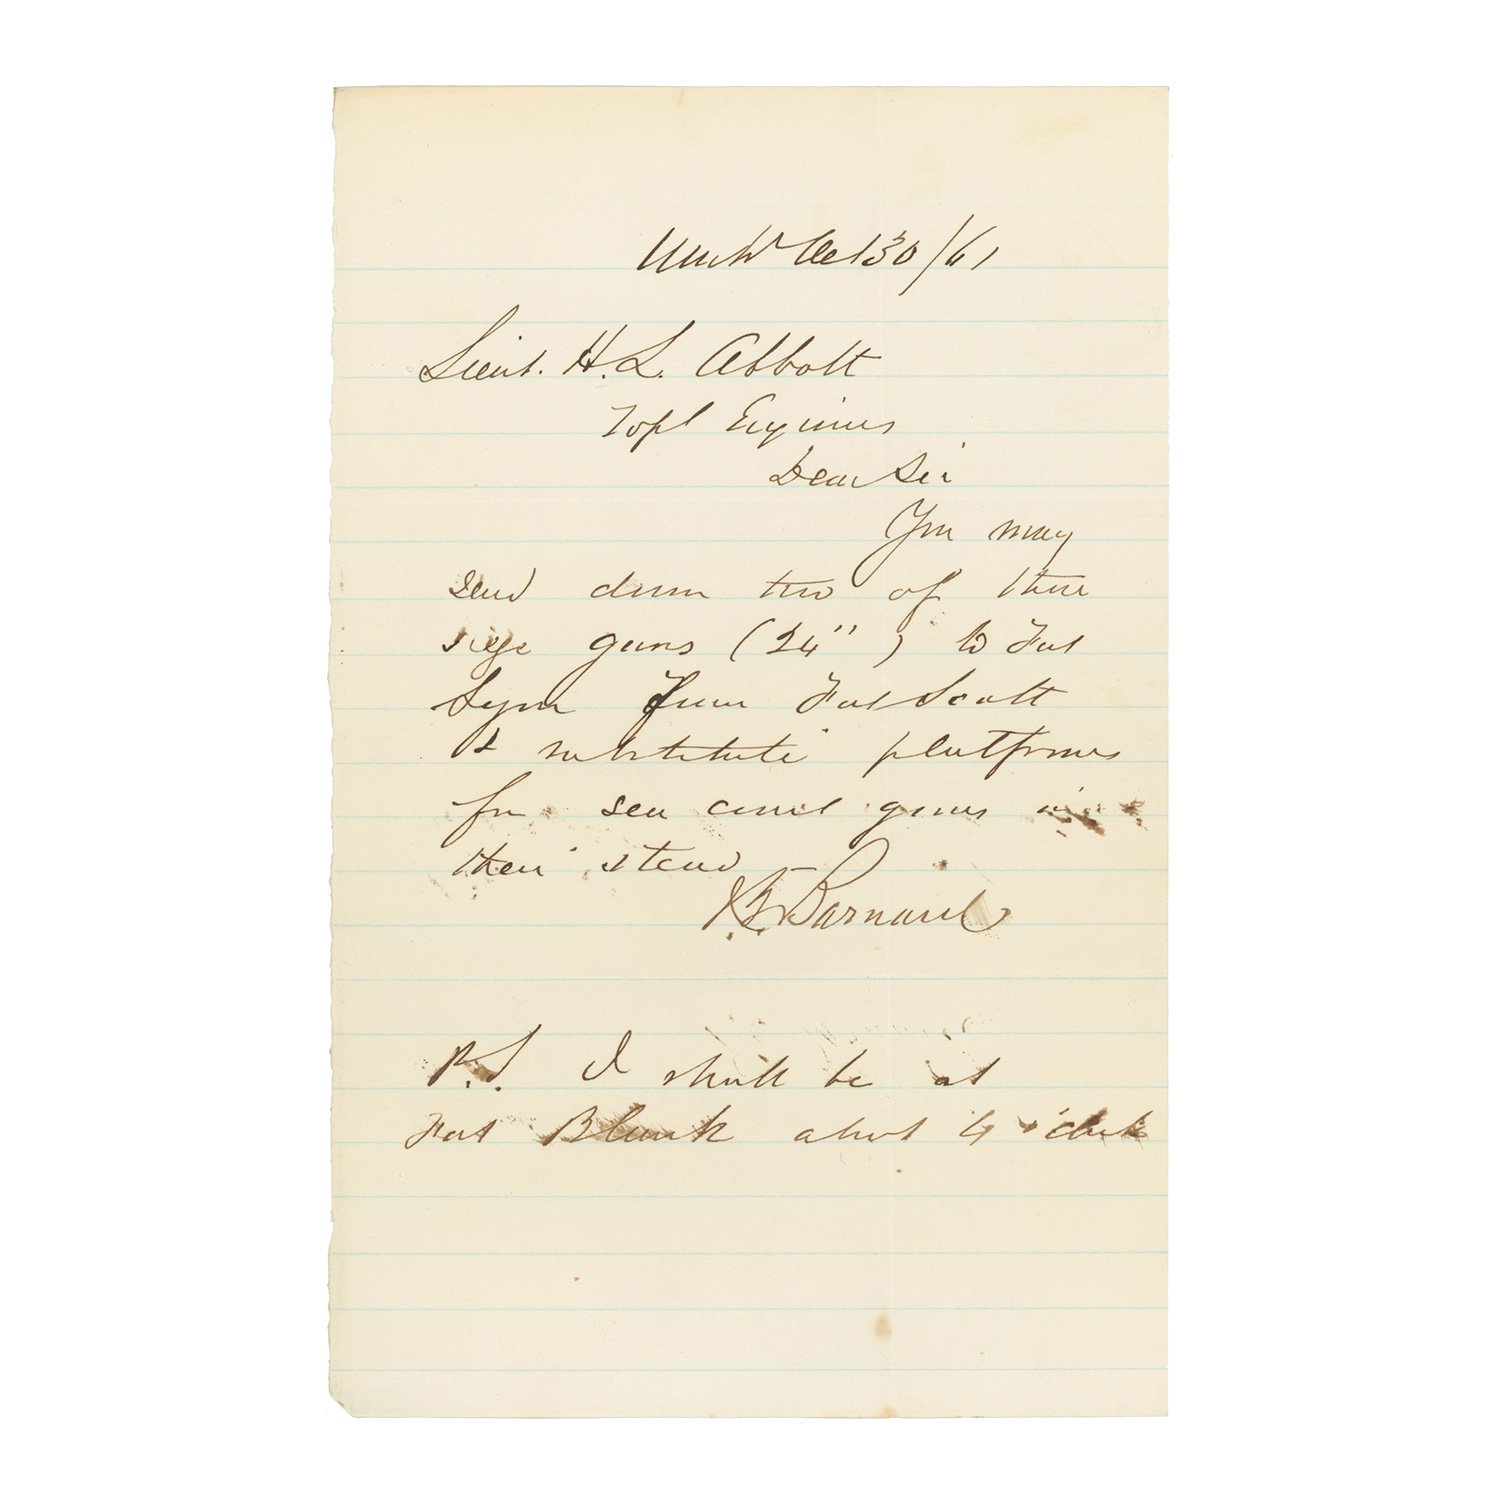 Washn Oct 30/61
Lieut. H. L. Abbott
Topl Engineers
Dear Sir
You may
send down two of these
siege guns (24") to Fort
from Fort Scott
& substitute platforms
for sea coast guns in
their stead
J.G. Barnard
P.S. I shall be at
Fort Blenk about 4 o'clock